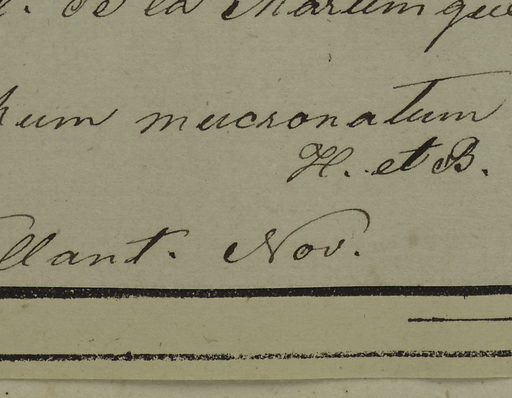 de la Martinique
mucronatum
H. et B.
Nov.